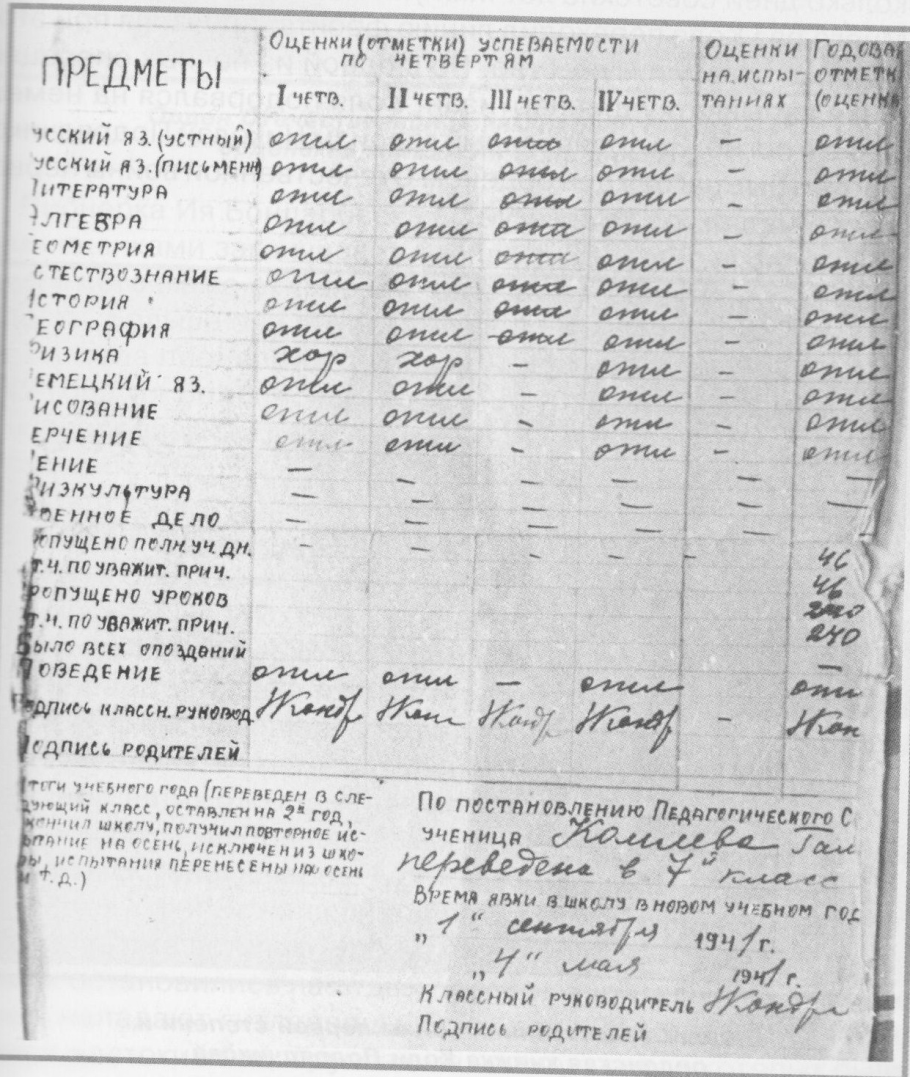 ПРЕДМЕТЫ
ОЦЕНКИ (ОТМЕТКИ) УСПЕВАЕМОСТИ
ПО ЧЕТВЕРТЯМ
I ЧЕТВ. II ЧЕТВ. III ЧЕТВ. IV ЧЕТВ.
ОЦЕНКИ
НА ИСПЫ-
ТАНИЯХ
ГОДОВА
ОТМЕТК
(ОЦЕНК
УССКИЙ ЯЗ. (УСТНЫЙ) отл отл отл отл – отл
УССКИЙ ЯЗ. (ПИСЬМЕНН) отл отл отл отл – отл
ИТЕРАТУРА отл отл отл отл – отл
ЛГЕБРА отл отл отл отл – отл
ЕОМЕТРИЯ отл отл отл отл – отл
СТЕСТВОЗНАНИЕ отл отл отл отл – отл
СТОРИЯ отл отл отл отл – отл
ЕОГРАФИЯ отл отл отл отл – отл
ИЗИКА хор хор – отл – отл
ЕМЕЦКИЙ ЯЗ. отл отл – отл – отл
ИСОВАНИЕ отл отл – отл – отл
ЕРЧЕНИЕ отл отл – отл – отл
ЕНИЕ – – – – – –
ИЗКУЛЬТУРА – – – – – –
ОЕННОЕ ДЕЛО – – – – – –
ОПУЩЕНО ПОЛН. УЧ. ДН. – – – – – 46
Т.Ч. ПО УВАЖИТ. ПРИЧ. 46
РОПУЩЕНО УРОКОВ 240
Т.Ч. ПО УВАЖИТ. ПРИЧ. 240
БЫЛО ВСЕХ ОПОЗДАНИЙ –
ПОВЕДЕНИЕ отл отл – отл отл
ПОДПИСЬ КЛАССН. РУКОВОД. –
ПОДПИСЬ РОДИТЕЛЕЙ
ИТОГИ УЧЕБНОГО ГОДА (ПЕРЕВЕДЕН В СЛЕ-
ДУЮЩИЙ КЛАСС, ОСТАВЛЕН НА 2й ГОД,
КОНЧИЛ ШКОЛУ, ПОЛУЧИЛ ПОВТОРНОЕ ИС-
ПЫТАНИЕ НА ОСЕНЬ, ИСКЛЮЧЕН ИЗ ШКО-
ЛЫ, ИСПЫТАНИЯ ПЕРЕНЕСЕНЫ НА ОСЕНЬ
И Т.Д.)
ПО ПОСТАНОВЛЕНИЮ ПЕДАГОГИЧЕСКОГО С
УЧЕНИЦА Гал
переведена в 7й класс
ВРЕМЯ ЯВКИ В ШКОЛУ В НОВОМ УЧЕБНОМ ГОД
„1“ сентября 1941 г.
„4“ мая 1941 г.
КЛАССНЫЙ РУКОВОДИТЕЛЬ
ПОДПИСЬ РОДИТЕЛЕЙ